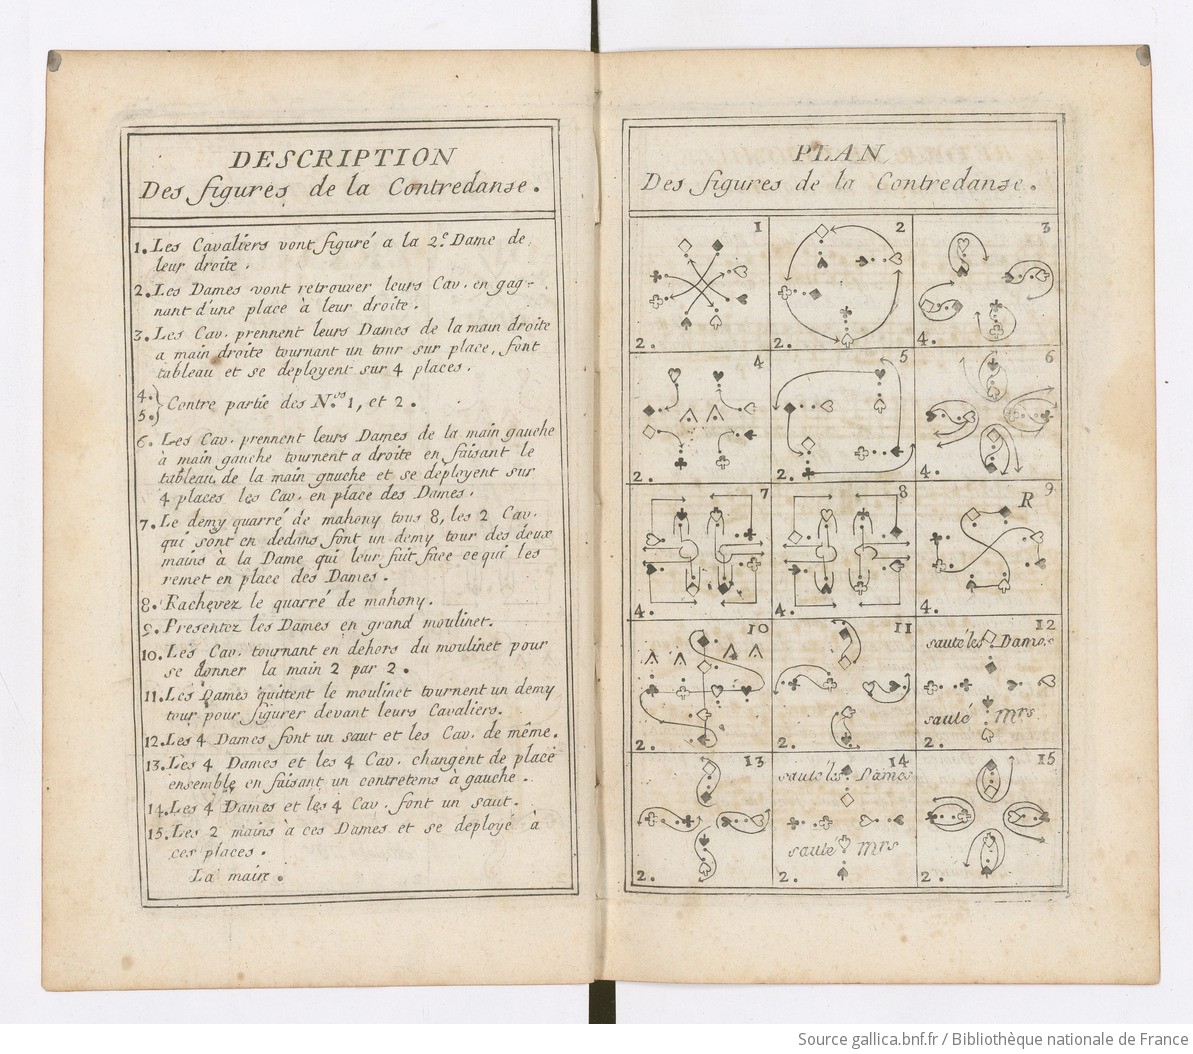 DESCRIPTION
Des figures de la Contredanse.
1. Les Cavaliers vont figuré a la 2.e Dame de
leur droite.
2. Les Dames vont retrouver leurs Cav. en gag-
nant d'une place à leur droite.
3. Les Cav. prennent leurs Dames de la main droite
a main droite tournant un tour sur place, font
tableau et se deployent sur 4 places.
4.
5.} Contre partie des N.os 1, et 2.
6. Les Cav. prennent leurs Dames de la main gauche
à main gauche tournent a droite en faisant le
tableau de la main gauche et se déployent sur
4 places les Cav. en place des Dames.
7. Le demy quarré de mahony tous 8, les 2 Cav.
qui sont en dedans font un demy tour des deux
mains à la Dame qui leur fait face ce qui les
remet en place des Dames.
8. Rachevez le quarré de mahony.
9. Presentez les Dames en grand moulinet.
10. Les Cav. tournant en dehors du moulinet pour
se donner la main 2 par 2.
11. Les Dames quittent le moulinet tournent un demy
tour pour figurer devant leurs Cavaliers.
12. Les 4 Dames font un saut et les Cav. de même.
13. Les 4 Dames et les 4 Cav. changent de place
ensemble en faisant un contretems à gauche.
14. Les 4 Dames et les 4 Cav. font un saut.
15. Les 2 mains à ces Dames et se deployé à
ces places.
La main.
PLAN
Des figures de la Contredanse.
1
2.
2
2.
3
4.
4
2.
5
2.
6
4.
7
4.
8
4.
9
R
4.
10
2.
11
2.
12
sauté les Dames
sauté Mrs
2.
13
2.
14
sauté les Dames
sauté Mrs
2.
15
2.
Source gallica.bnf.fr / Bibliothèque nationale de France